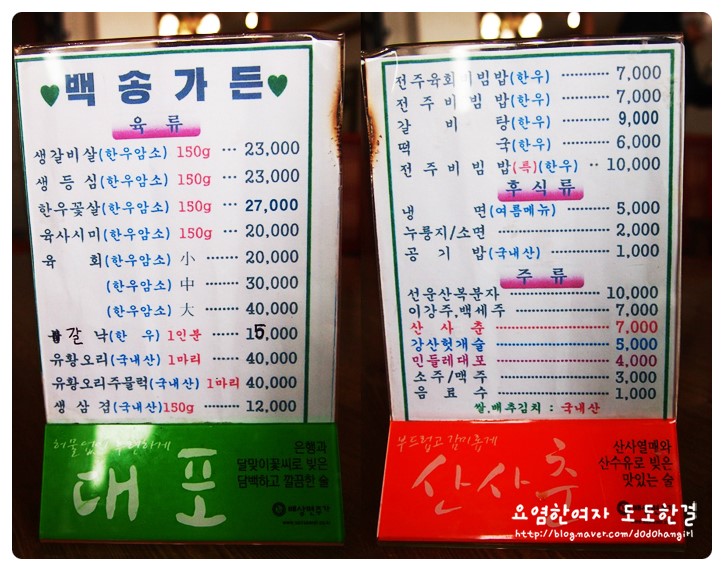 백송가든
육류
생갈비살(한우암소) 150g ··· 23,000
생등심(한우암소) 150g ······ 23,000
한우꽃살(한우암소) 150g ··· 27,000
육사시미(한우암소) 150g ··· 20,000
육 회(한우암소) 小 ········ 20,000
(한우암소) 中 ········ 30,000
(한우암소) 大 ········ 40,000
갈 낙(한 우) 1인분 ······ 15,000
유황오리(국내산) 1마리 ····· 40,000
유황오리주물럭(국내산) 1마리 40,000
생삼겹(국내산)150g ········ 12,000
허물없는
대포
은행과
달맞이꽃씨로 빚은
담백하고 깔끔한 술
배상면주가
전주육회비빔밥(한우) ········ 7,000
전주비빔밥(한우) ········ 7,000
갈비탕(한우) ········ 9,000
떡국(한우) ········ 6,000
전주비빔밥(특)(한우) ·· 10,000
후식류
냉 면(여름메뉴) ········ 5,000
누룽지/소면 ········ 2,000
공기밥(국내산) ········ 1,000
주류
선운산복분자 ········ 10,000
이강주,백세주 ········ 7,000
산사춘 ········ 7,000
강산헛개술 ········ 5,000
민들레대포 ········ 4,000
소주/맥주 ········ 3,000
음료수 ········ 1,000
쌀,배추김치 : 국내산
부드럽고 감미롭게
산사춘
산사열매와
산수유로 빚은
맛있는 술
요염한여자 도도한걸
http://blog.naver.com/dodohangirl